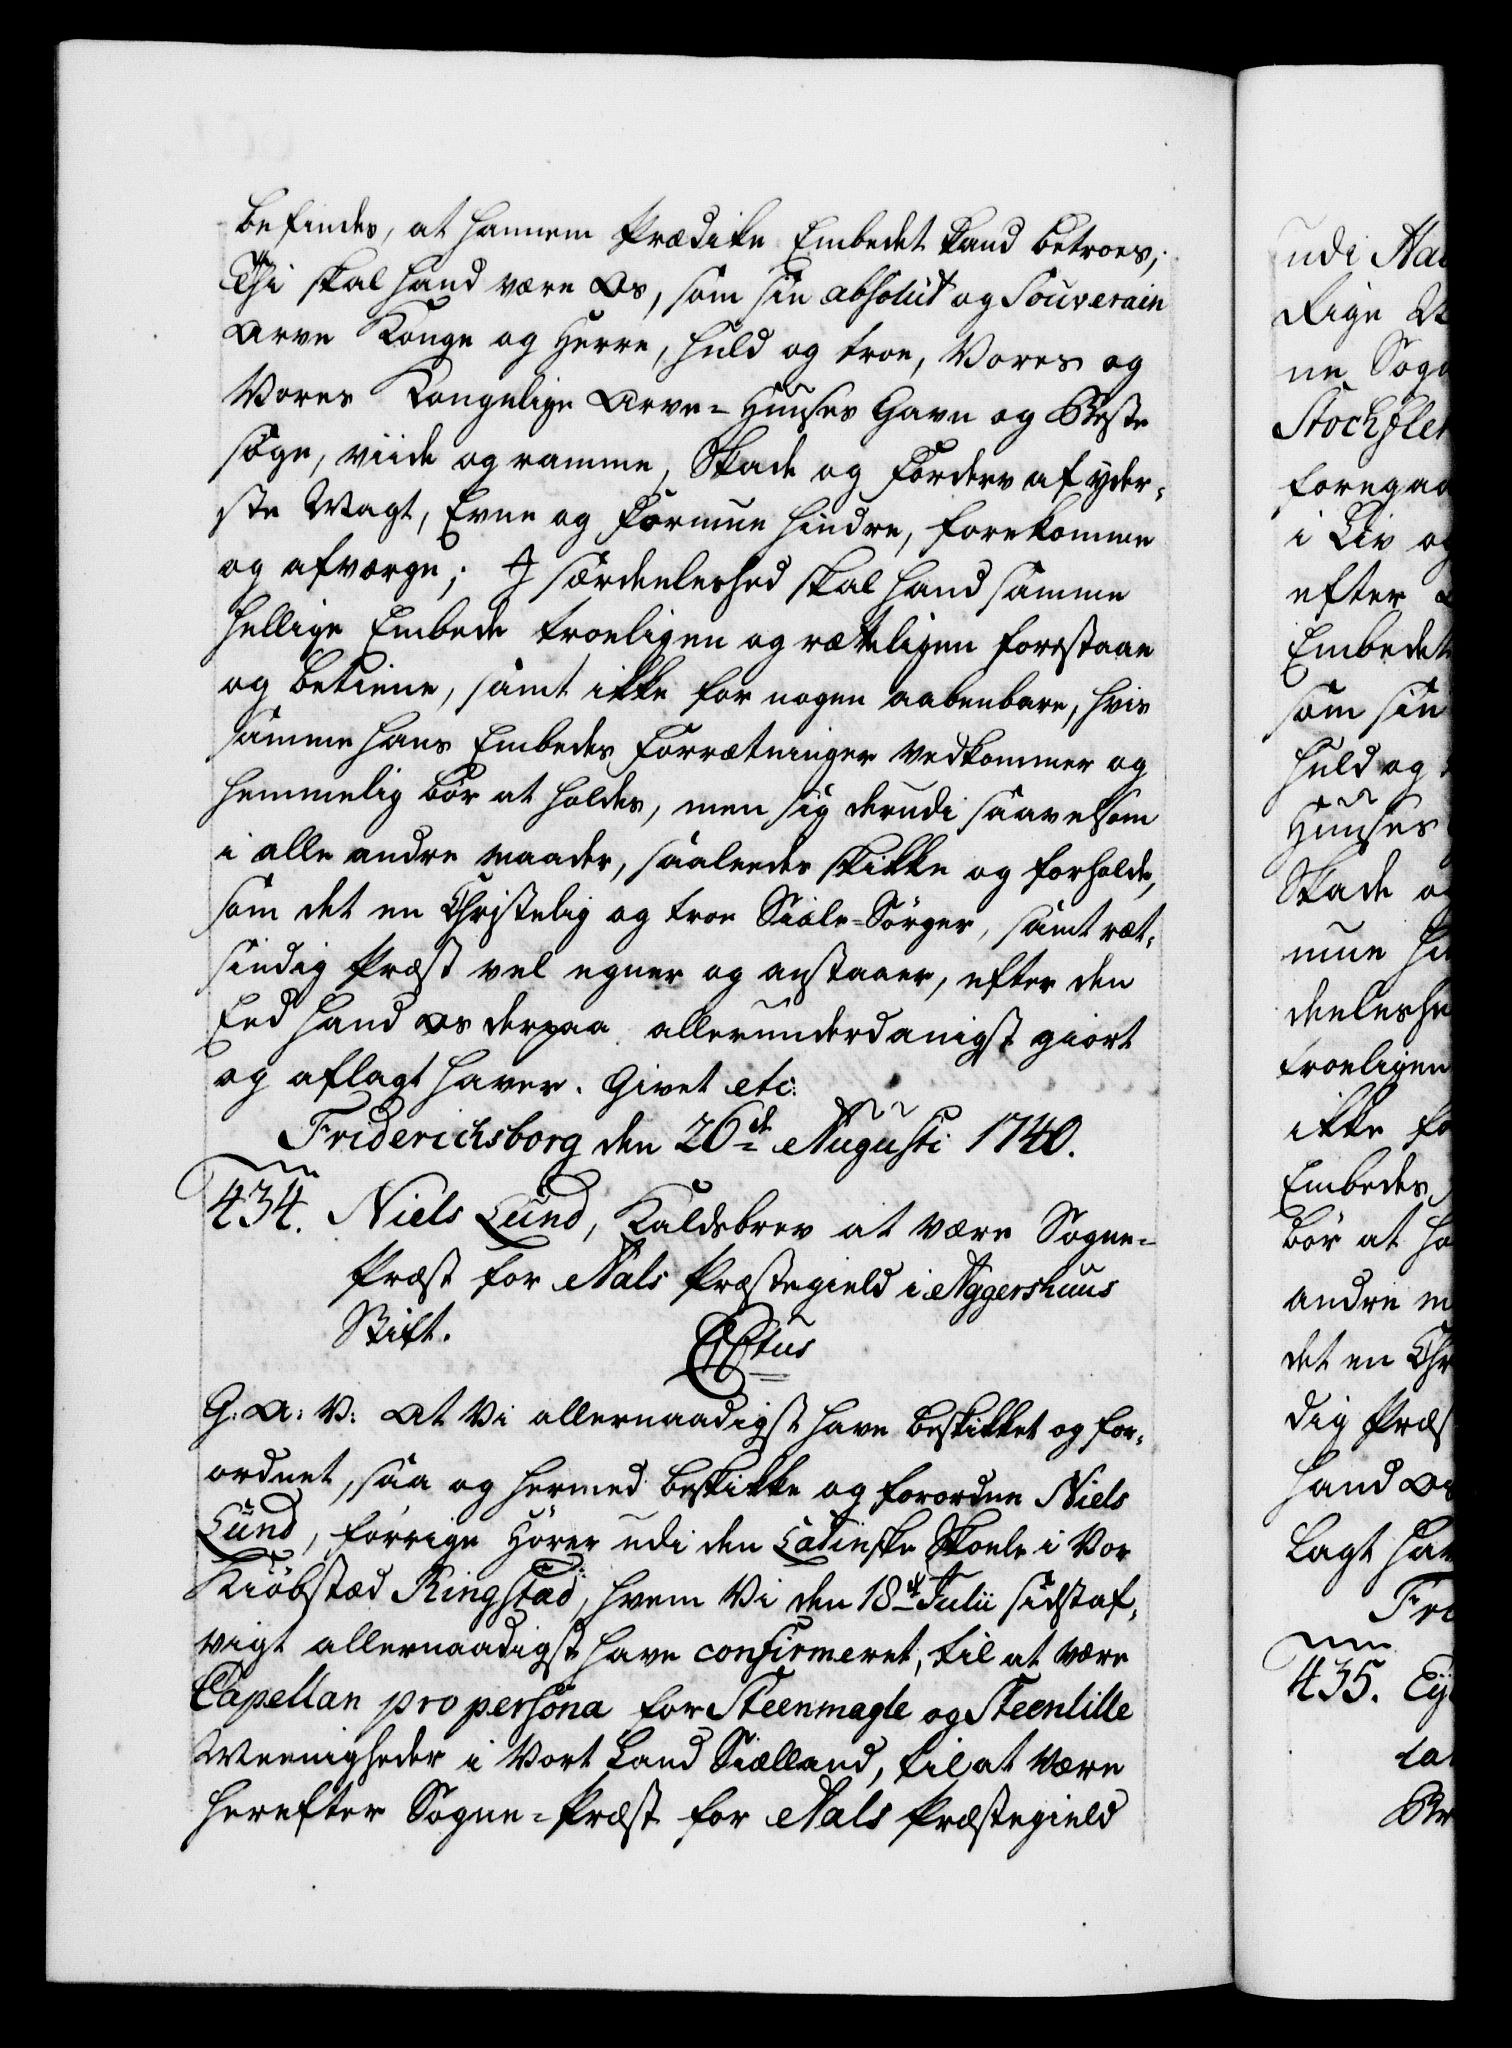 befindes, at hannem Prædike Embedet kand betroes;
Thi skal hand være Os, som sin absolut og Souverain
Arve Konge og Herre, huld og troe, Vores og
Vores Kongelige Arve-Huuses Gavn og Beste
søge, viide og ramme, Skade og Forderv af yder-
ste Magt, Evne og Formue hindre, forekomme
og afværge; I særdeeleshed skal hand samme
hellige Embede troeligen og rætteligen forestaae
og betiene, samt ikke for nogen aabenbare, hvis
samme hans Embedes Forrætninger vedkommer og
hemmelig bør at holdes, men sig derudi saavelsom
i alle andre maader, saaledes skikke og forholde,
som det en Christelig og troe Siæle-Sørger, samt ræt-
sindig Præst vel egner og anstaaer, efter den
Eed hand Os derpaa allerunderdanigst giort
og aflagt haver. Givet etc:
Friderichsborg den 26de Augusti 1740.
434. Niels Lund, Kaldsbrev at være Sogne-
Præst for Aals Præstegield i Aggershuus
Stift.
C 6tus
G: A: V: At Vi allernaadigst have beskikket og for-
ordnet, saa og hermed beskikke og forordne Niels
Lund, forrige Hører udi den Latinske Skoele i Vor
Kiøbstæd Ringstad, hvem Vi den 18de Julii sidst af-
vigt allernaadigst have confirmeret, til at være
Capellan pro persona for Steenmagle og Steenlille
Meenigheder i Vort Land Siælland, til at være
herefter Sogne-Præst for Aals Præstegield
udi
Rige
ne Sog
Stochfle
foregaa
i Liv og
efter
Embedet
som sin
huld og
Huuses
Skade og
mue hi
deeleshe
troeligen
ikke fo
Embedes
bør at ho
andre m
det en Chr
dig Præs
hand Os
lagt hav
Fri
435.